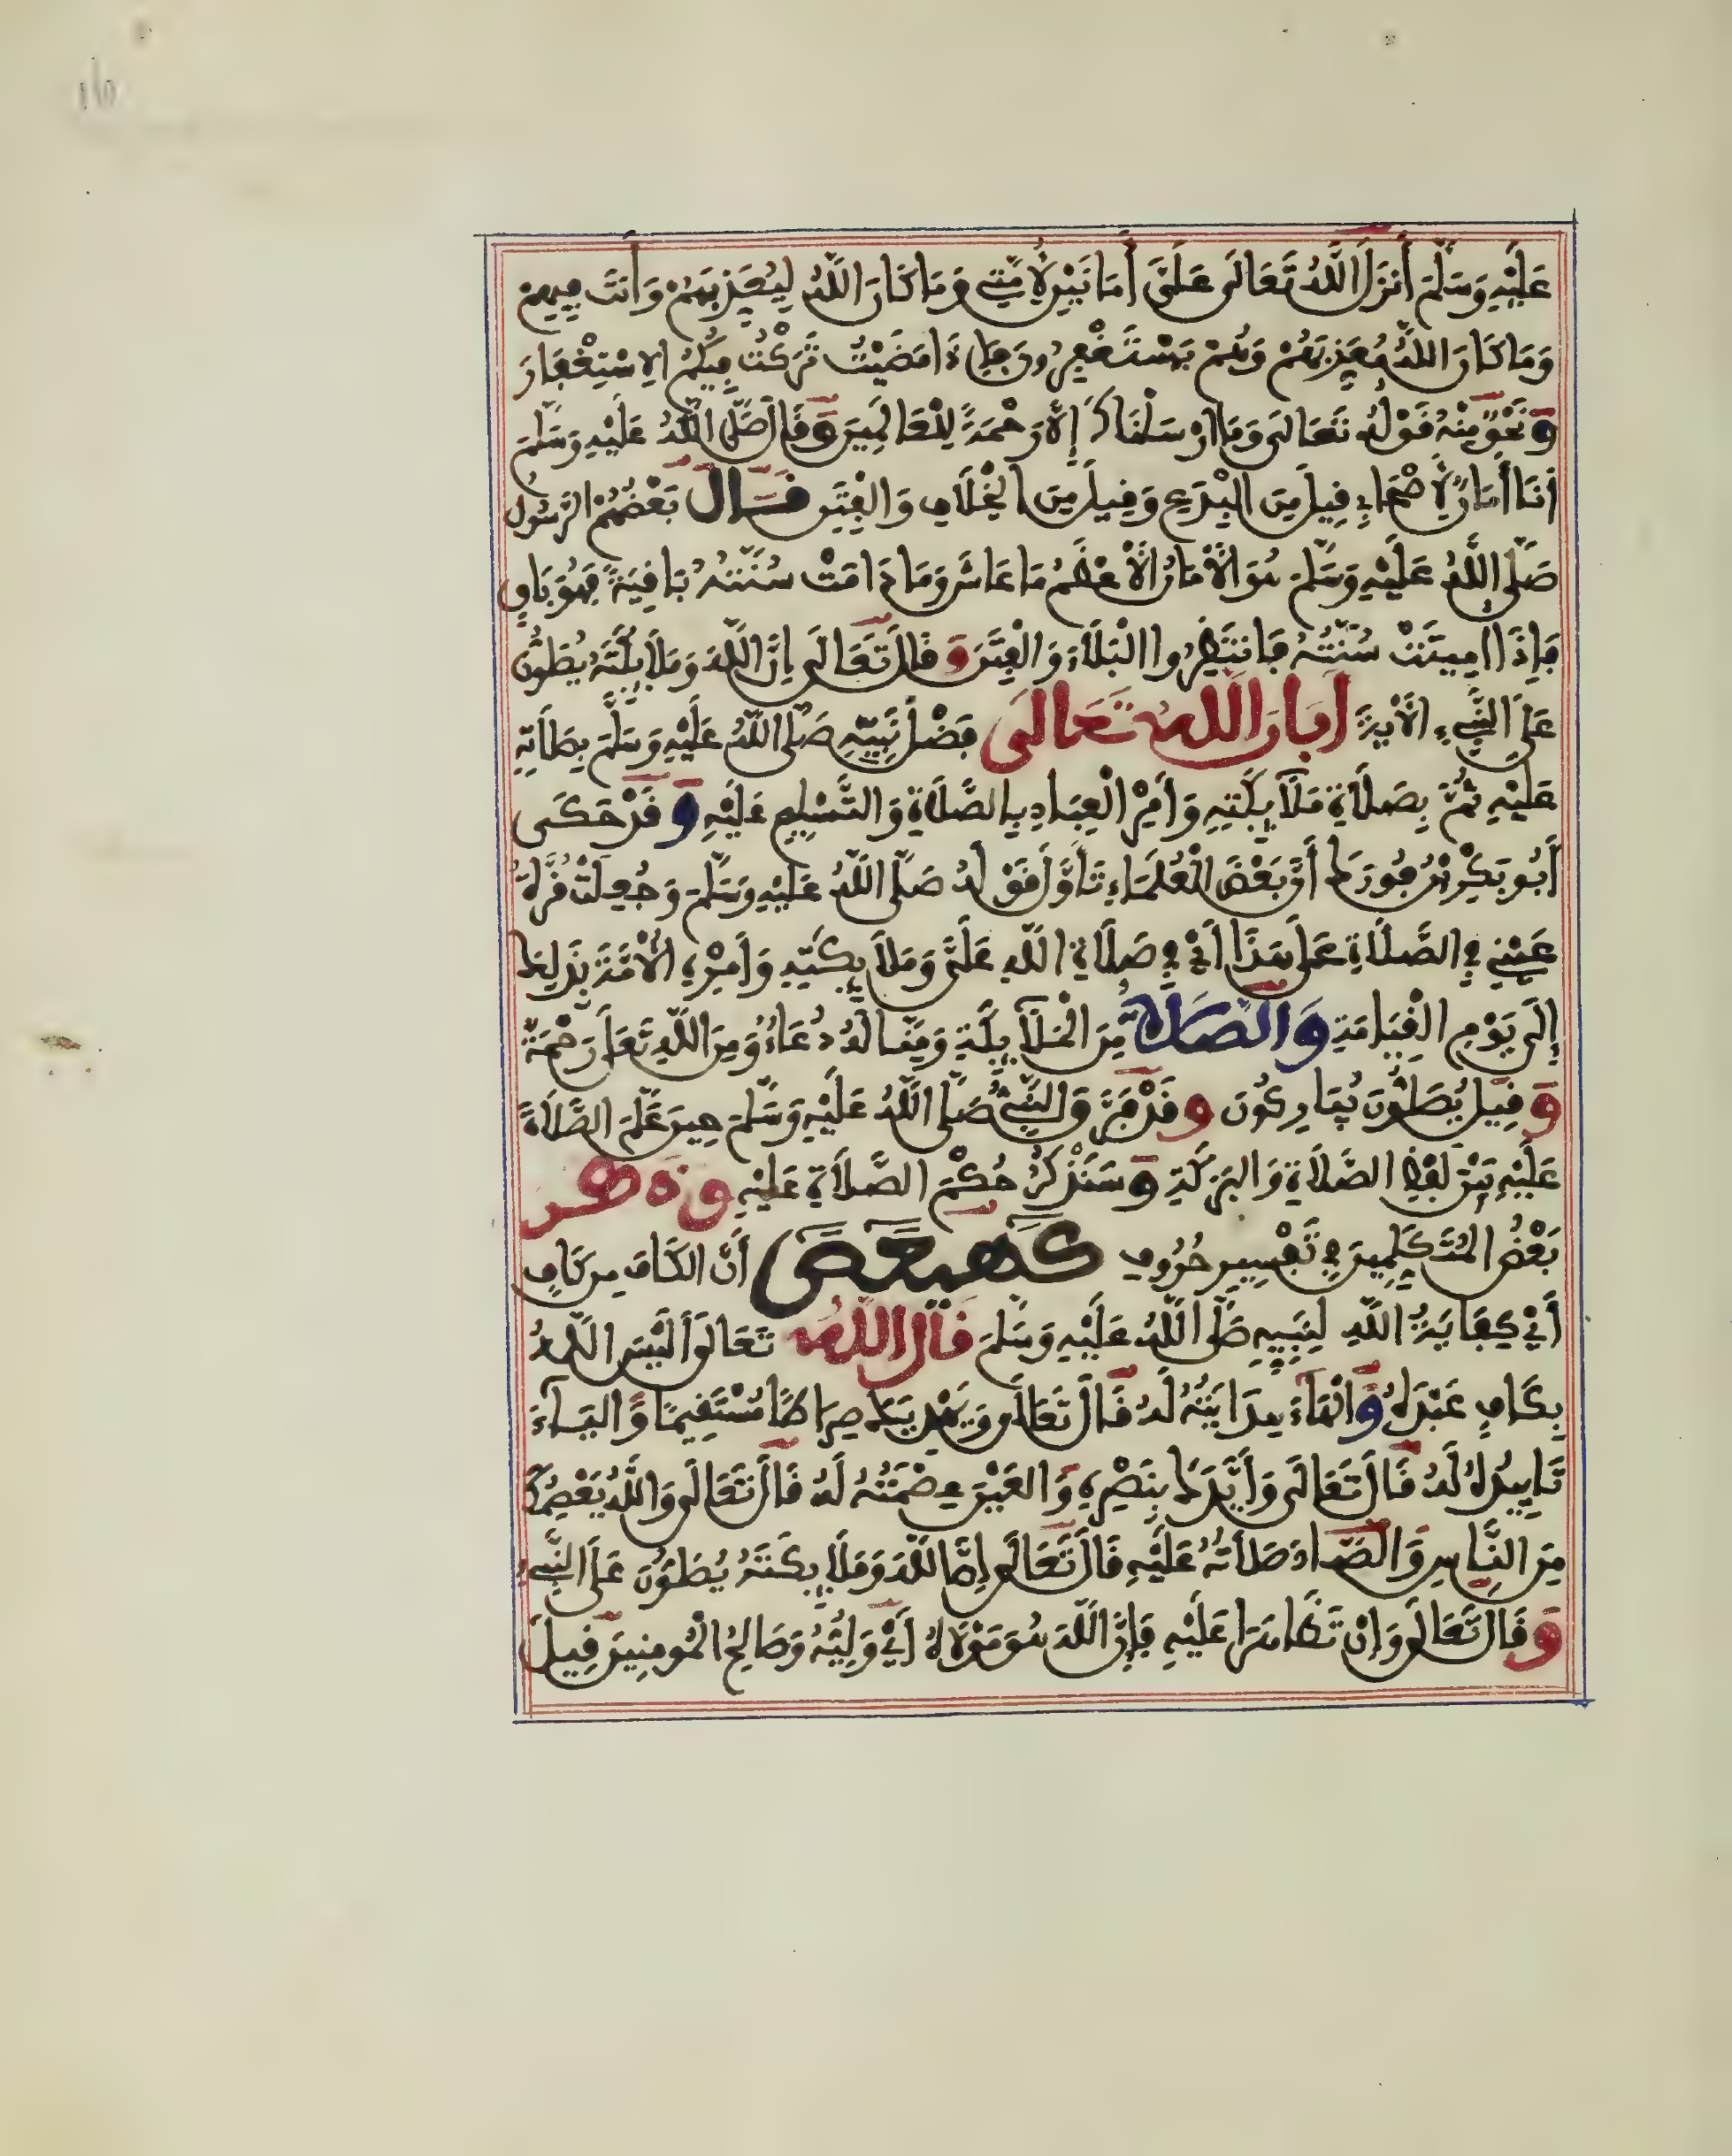 عَلَيْهِ وَسَلَّمَ أَنزَلَ اللَّهُ تَعَالَى عَلَىَّ أَمَانَيْنِ لِأُمَّتِي وَمَا كَانَ اللَّهُ لِيُعَذِّبَهُمْ وَأَنتَ فِيهِمْ
وَمَا كَانَ اللَّهُ مُعَذِّبَهُمْ وَهُمْ يَسْتَغْفِرُونَ فَإِذَا مَضَيْتُ تَرَكْتُ فِيكُمُ الِاسْتِغْفَارَ
وَنَحْوٌ مِنْهُ قَوْلُهُ تَعَالَى وَمَا أَرْسَلْنَاكَ إِلَّا رَحْمَةً لِلْعَالَمِينَ وَقَالَ صَلَّى اللَّهُ عَلَيْهِ وَسَلَّمَ
أَنَا أَمَانٌ لِأَصْحَابِي قِيلَ مِنَ الْبِدَعِ وَقِيلَ مِنَ الِاخْتِلَافِ وَالْفِتَنِ قَالَ بَعْضُهُمُ الرَّسُولُ
صَلَّى اللَّهُ عَلَيْهِ وَسَلَّمَ هُوَ الْأَمَانُ الْأَعْظَمُ مَا عَاشَ وَمَا دَامَتْ سُنَّتُهُ بَاقِيَةً فَهُوَ بَاقٍ
فَإِذَا امِيتَتْ سُنَّتُهُ فَانتَظِرُوا الْبَلَاءَ وَالْفِتَنَ وَقَالَ تَعَالَى إِنَّ اللَّهَ وَمَلَائِكَتَهُ يُصَلُّونَ
عَلَى النَّبِيءِ الْأَيَةَ أَبَانَ اللَّهُ تَعَالَى فَضْلَ نَبِيِّهِ صَلَّى اللَّهُ عَلَيْهِ وَسَلَّمَ بِصَلَاتِهِ
عَلَيْهِ ثُمَّ بِصَلَاةِ مَلَائِكَتِهِ وَأَمْرِ الْعِبَادِ بِالصَّلَاةِ وَالتَّسْلِيمِ عَلَيْهِ وَقَدْ حَكَى
أَبُو بَكْرِ بْنُ فُورَكَ أَنَّ بَعْضَ الْعُلَمَاءِ تَأَوَّلَ قَوْلَهُ صَلَّى اللَّهُ عَلَيْهِ وَسَلَّمَ وَجُعِلَتْ قُرَّةُ
عَيْنِي فِي الصَّلَاةِ عَلَى هَذَا أَيْ فِي صَلَاةِ اللَّهِ عَلَىَّ وَمَلَائِكَتِهِ وَأَمْرِهِ الْأُمَّةَ بِذَلِكَ
إِلَى يَوْمِ الْقِيَامَةِ وَالصَّلَاةُ مِنَ الْمَلَائِكَةِ وَمِنَّا لَهُ دُعَاءٌ وَمِنَ اللَّهِ تَعَالَى رَحْمَةٌ
وَقِيلَ يُصَلُّونَ يُبَارِكُونَ وَقَدْ فَرَّقَ النَّبِيُّ صَلَّى اللَّهُ عَلَيْهِ وَسَلَّمَ حِينَ عَلَّمَ الصَّلَاةَ
عَلَيْهِ بَيْنَ لَفْظِ الصَّلَاةِ وَالْبَرَكَةِ وَسَنَذْكُرُ حُكْمَ الصَّلَاةِ عَلَيْهِ وَذَهَبَ
بَعْضُ الْمُتَكَلِّمِينَ فِي تَفْسِيرِ حُرُوفِ كهيعص أَنَّ الْكَافَ مِن كَافٍ
أَيْ كِفَايَةُ اللَّهِ لِنَبِيِّهِ صَلَّى اللَّهُ عَلَيْهِ وَسَلَّمَ قَالَ اللَّهُ تَعَالَى أَلَيْسَ اللَّهُ
بِكَافٍ عَبْدَهُ وَالْهَاءَ هِدَايَتُهُ لَهُ قَالَ تَعَالَى وَيَهْدِيَكَ صِرَاطًا مُسْتَقِيمًا وَالْيَاءَ
تَايِيدُهُ لَهُ قَالَ تَعَالَى وَأَيَّدَكَ بِنَصْرِهِ وَالْعَيْنَ عِصْمَتُهُ لَهُ قَالَ تَعَالَى وَاللَّهُ يَعْصِمُكَ
مِنَ النَّاسِ وَالصَّادَ صَلَاتُهُ عَلَيْهِ قَالَ تَعَالَى إِنَّ اللَّهَ وَمَلَائِكَتَهُ يُصَلُّونَ عَلَى النَّبِيءِ
وَقَالَ تَعَالَى وَإِن تَظَّاهَرَا عَلَيْهِ فَإِنَّ اللَّهَ هُوَ مَوْلَاهُ أَيْ وَلِيُّهُ وَصَالِحُ الْمُومِنِينَ قِيلَ